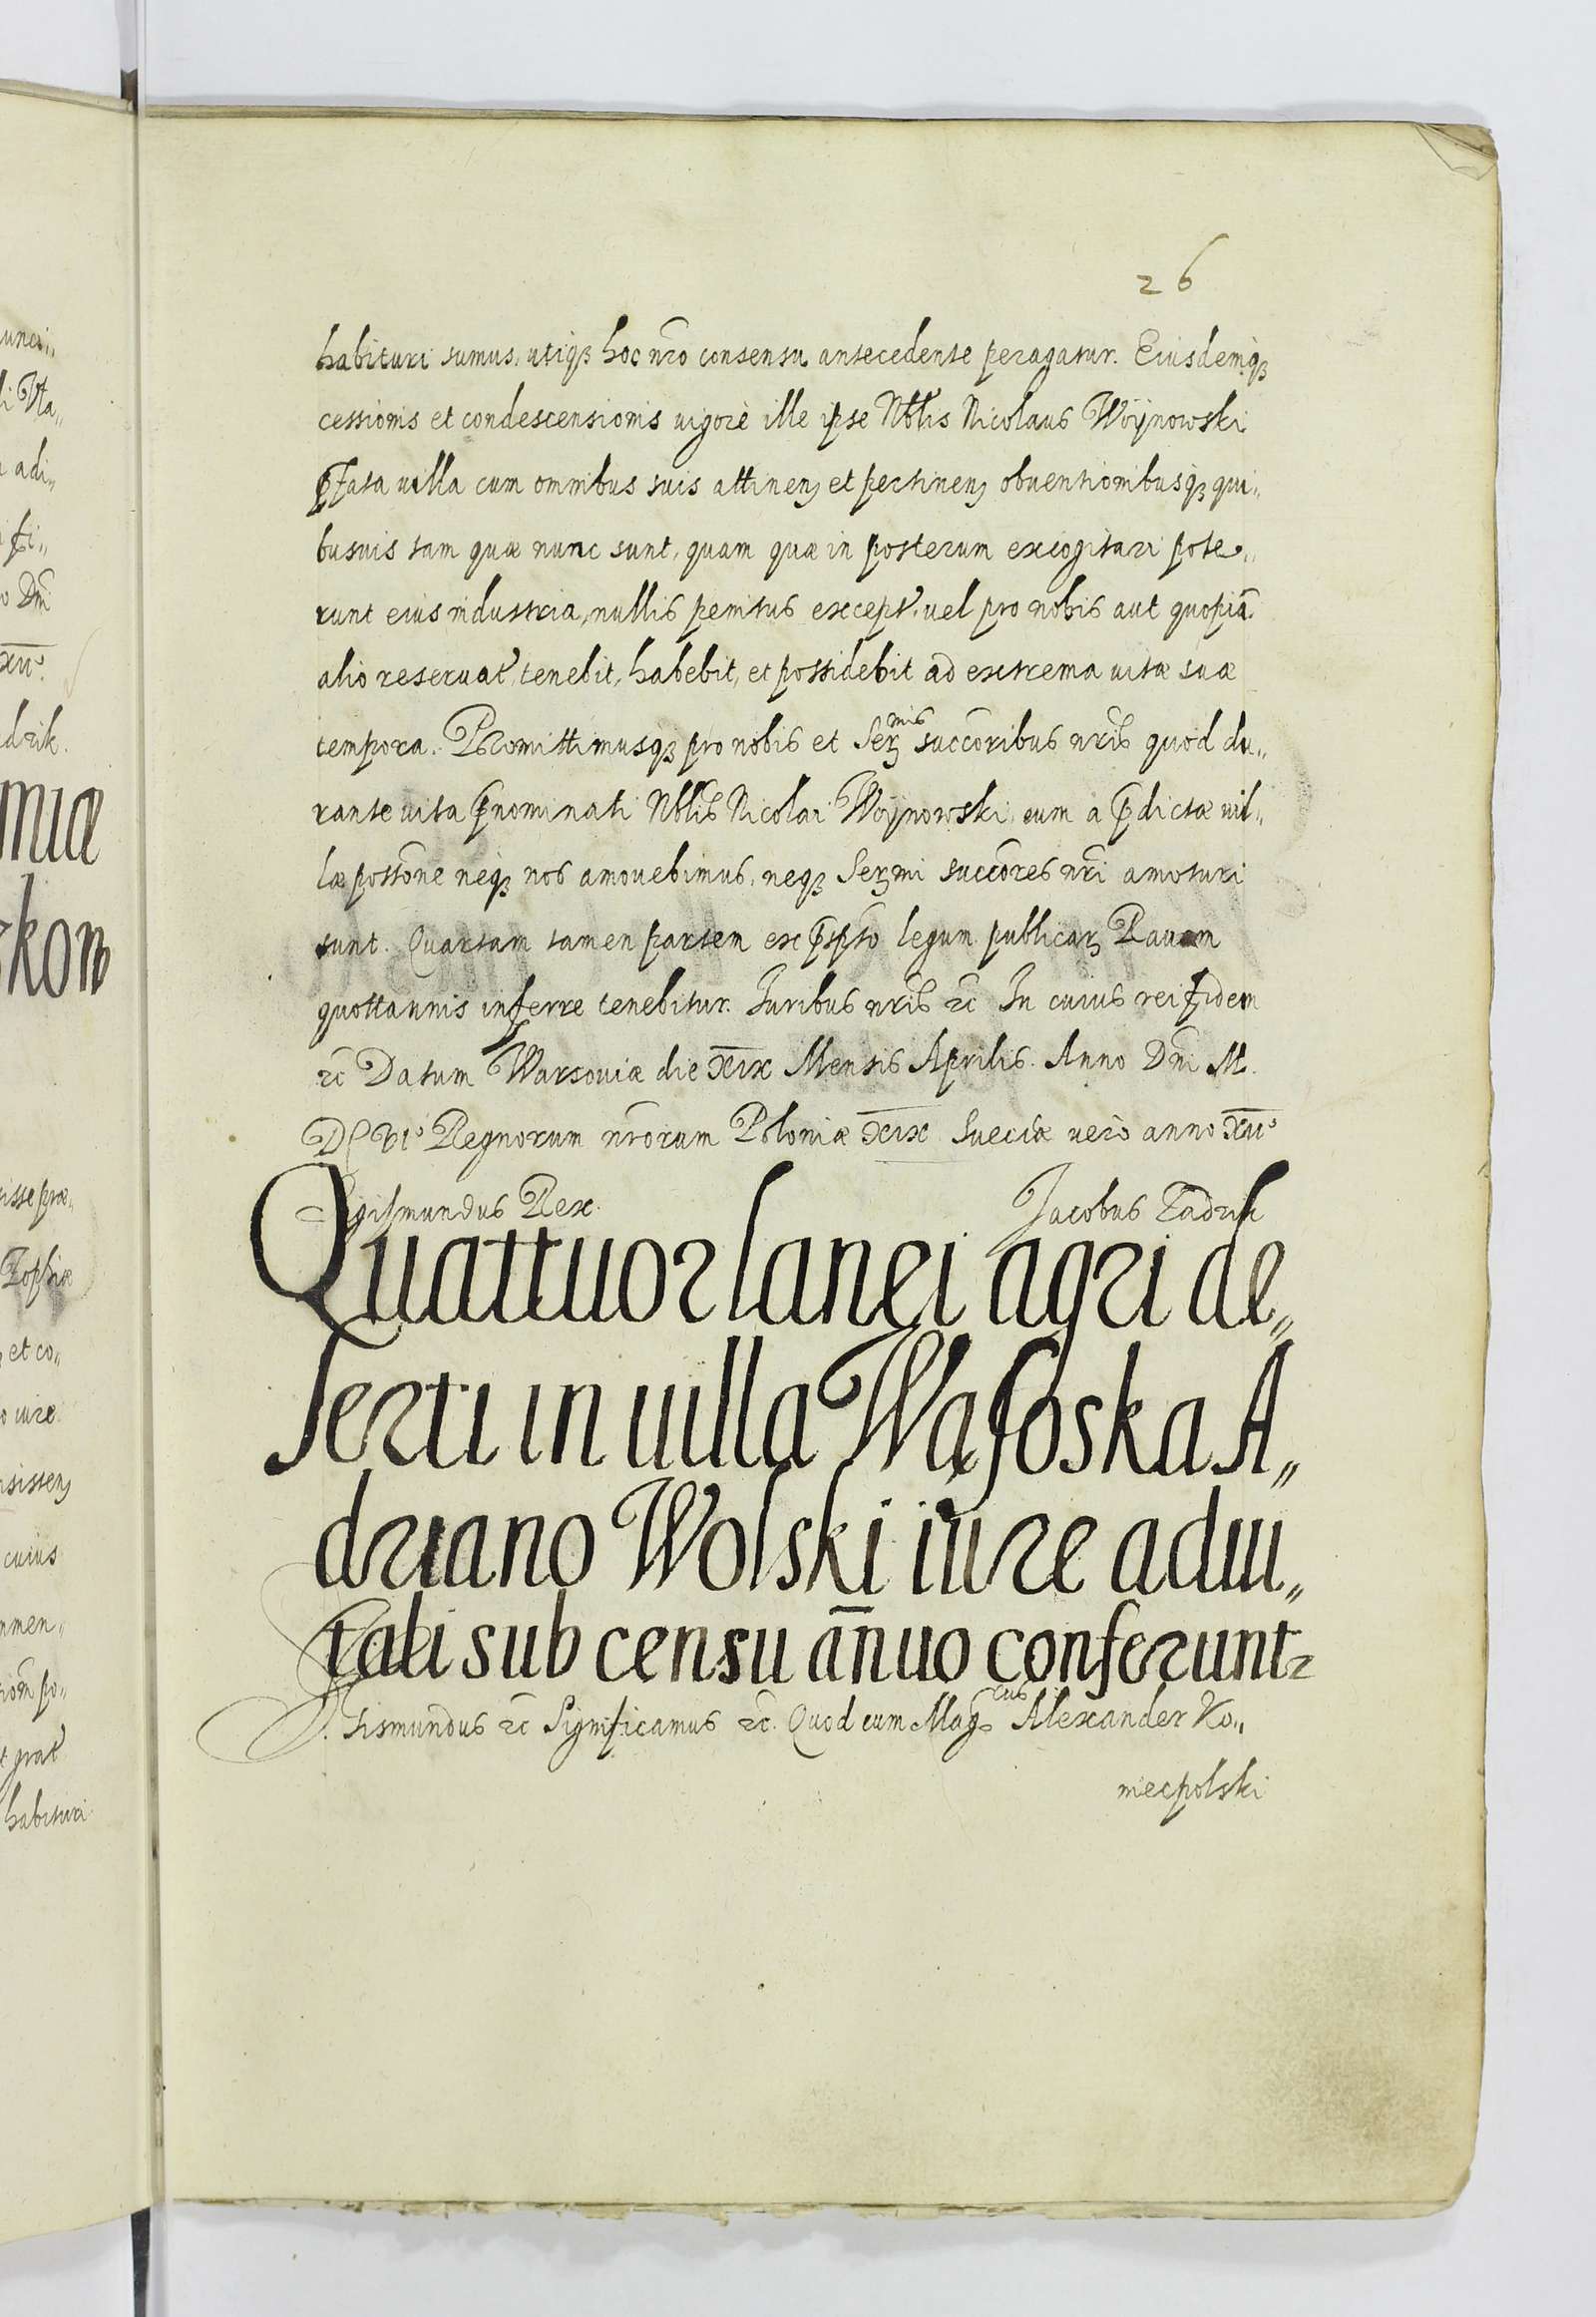 26
habituri sumus, utiq₃ hoc nr̃o consensu antecedente peragatur. Eiusdemq₃
cessionis et condescensionis vigore ille ipse Nblis Nicolaus Woÿnowski
p̃fata villa cum omnibus suis attinen₃ et pertinen₃ obuentionibusq₃ qui„
busuis tam quæ nunc sunt, quam quæ in posterum excogitari pote„
runt eius industria, nullis penitus except. uel pro nobis aut quopiã
alio reseruat tenebit, habebit, et possidebit ad extrema vitæ suæ
tempora. Promittimusq₃ pro nobis et Ser₃mis succ̃oribus nr̃is quod du„
rante vita p̃nominati Nblis Nicolai Woÿnowski eum a p̃dictæ vil„
læ poss̃one neq₃ nos amouebimus, neq₃ Ser₃mi succ̃ores nr̃i amoturi
sunt. Quartam tamen partem ex p̃sp̃to legum publicar₃ Rauam
quottannis inferre tenebitur. Iuribus nr̃is ꝛc̃ In cuius rei fidem
ꝛc̃ Datum Warsouiæ die XIX Mensis Aprilis. Anno Dñi M.
DC VIº Regnorum nr̃orum Poloniæ XIX Sueciæ verò anno XIIº
Sigismundus Rex. Jacobus Zadzik
Quattuor lanei agri de„
serti in uilla Wąsoska A„
driano Wolski iure adui„
tali sub censu añuo conferuntr
Sigismundus ꝛc̃ Significamus ꝛc̃. Quod cum Mag₃cus Alexander Ko„
niecpolski